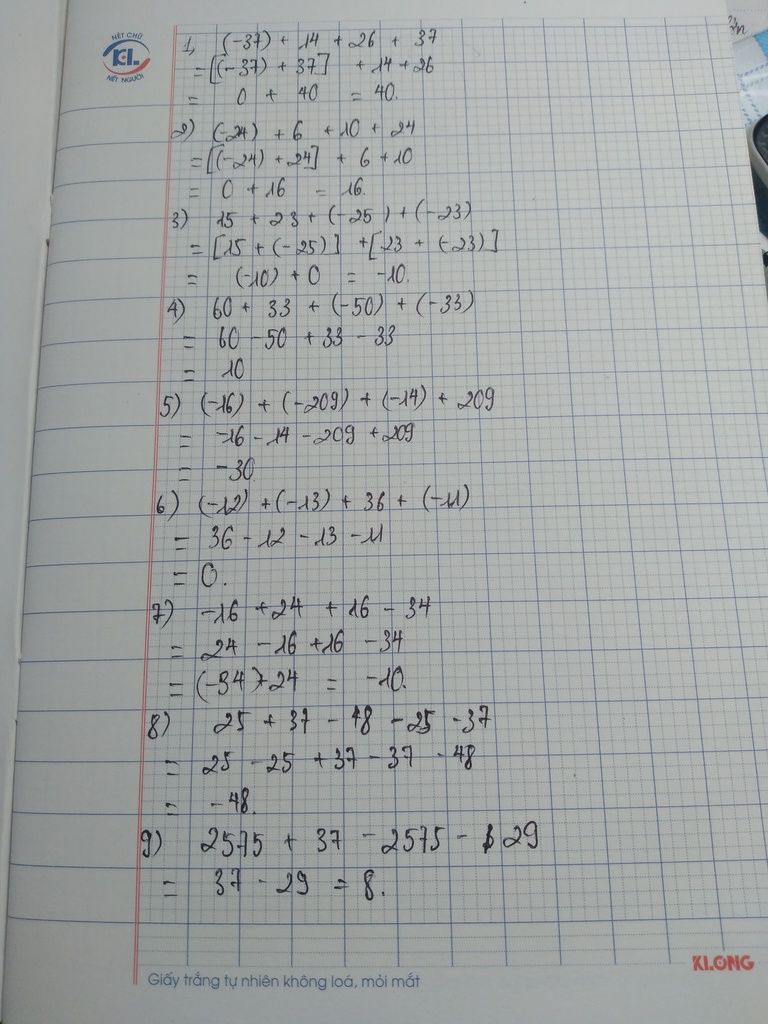 NÉT CHỮ
KL
NẾT NGƯỜI
1, (-37) + 14 + 26 + 37
= [(-37) + 37] + 14 + 26
= 0 + 40 = 40.
2) (-24) + 6 + 10 + 24
= [(-24) + 24] + 6 + 10
= 0 + 16 = 16.
3) 15 + 23 + (-25) + (-23)
= [15 + (-25)] + [23 + (-23)]
= (-10) + 0 = -10.
4) 60 + 33 + (-50) + (-33)
= 60 - 50 + 33 - 33
= 10
5) (-16) + (-209) + (-14) + 209
= -16 - 14 - 209 + 209
= -30
6) (-12) + (-13) + 36 + (-11)
= 36 - 12 - 13 - 11
= 0.
7) -16 + 24 + 16 - 34
= 24 - 16 + 16 - 34
= (-34) + 24 = -10.
8) 25 + 37 - 48 - 25 - 37
= 25 - 25 + 37 - 37 - 48
= -48.
9) 2575 + 37 - 2575 - 29
= 37 - 29 = 8.
KLONG
Giấy trắng tự nhiên không loá, mỏi mắt